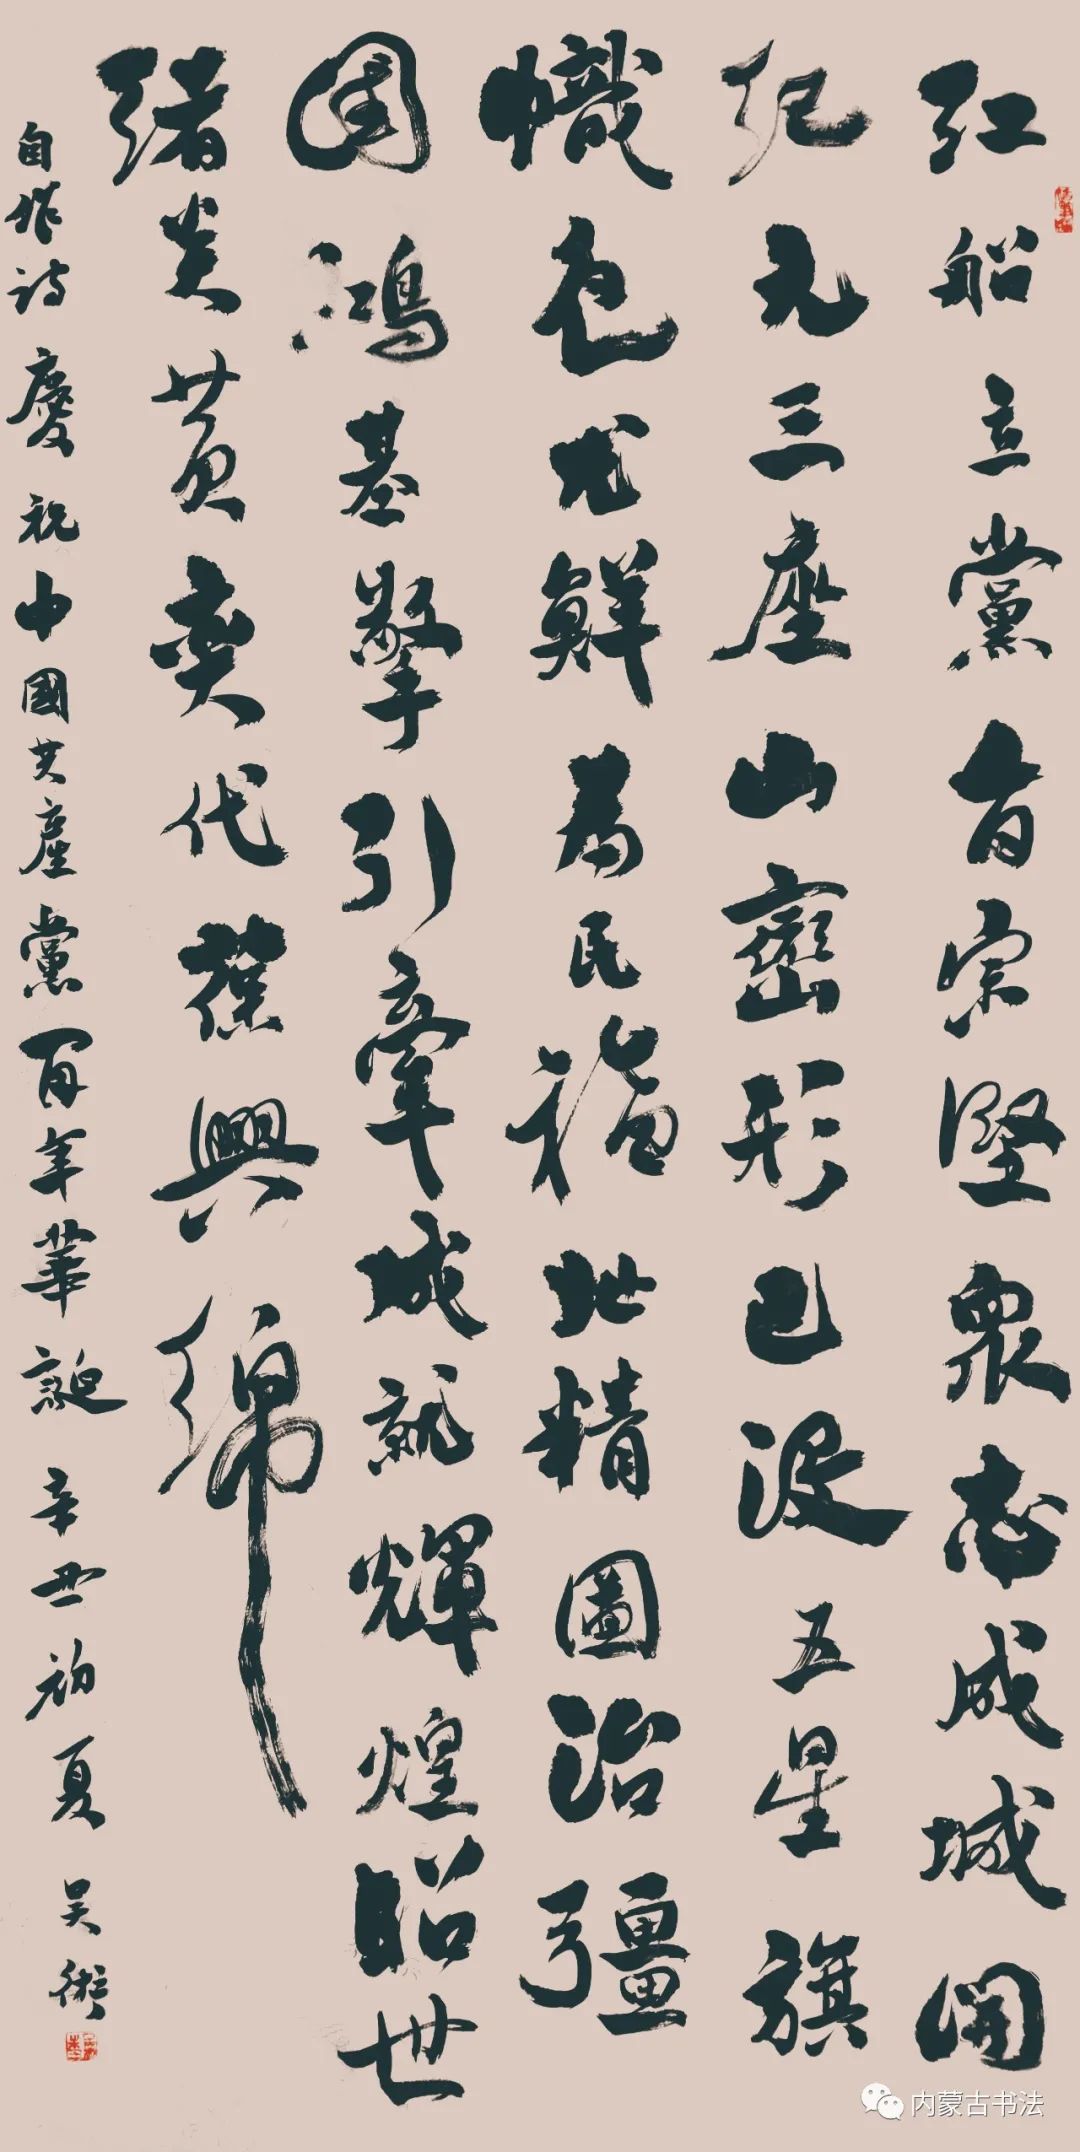 红船立黨宗堅眾志成城開
纪元三座山巒形已没五星旗
幟色尤鮮為民福祉精圖治彊
国鴻基擎引牽成就輝煌昭世
緒炎黄奕代葆興綿
自作詩慶祝中國共產黨百年華誕 辛丑初夏 吴術
内蒙古书法